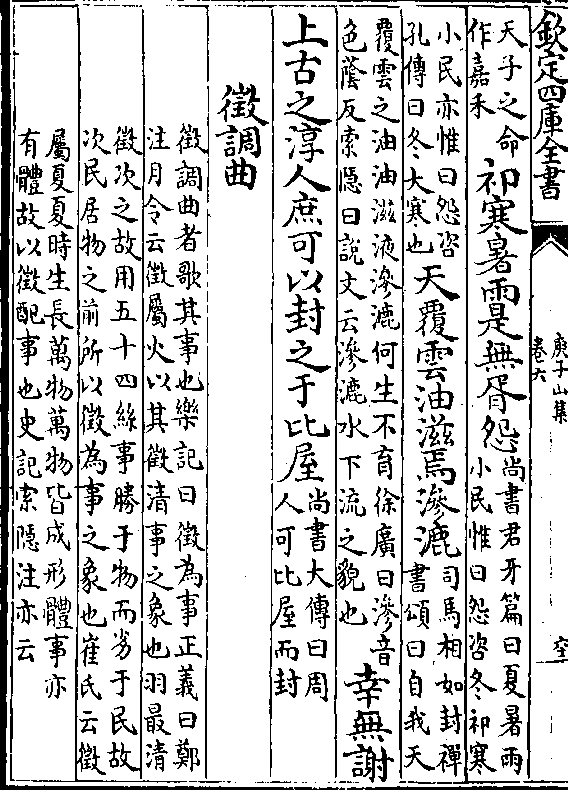 欽定四庫全書
庾子山集
卷六
天子之命
作嘉禾
祁寒暑雨是無胥怨
尚書君牙篇曰夏暑雨
小民惟曰怨咨冬祁寒
小民亦惟曰怨咨
孔傳曰冬大寒也
天覆雲油滋焉滲漉
司馬相如封禪
書頌曰自我天
覆雲之油油滋液滲漉何生不育徐廣曰滲音
色蔭反索隱曰說文云滲漉水下流之貌也
幸無謝
上古之淳人庶可以封之于比屋
尚書大傳曰周
人可比屋而封
徵調曲
徵調曲者歌其事也樂記曰徵為事正義曰鄭
注月令云徵屬火以其徵清事之象也羽最清
徵次之故用五十四絲事勝于物而劣于民故
次民居物之前所以徵為事之象也崔氏云徵
屬夏夏時生長萬物萬物皆成形體事亦
有體故以徵配事也史記索隱注亦云